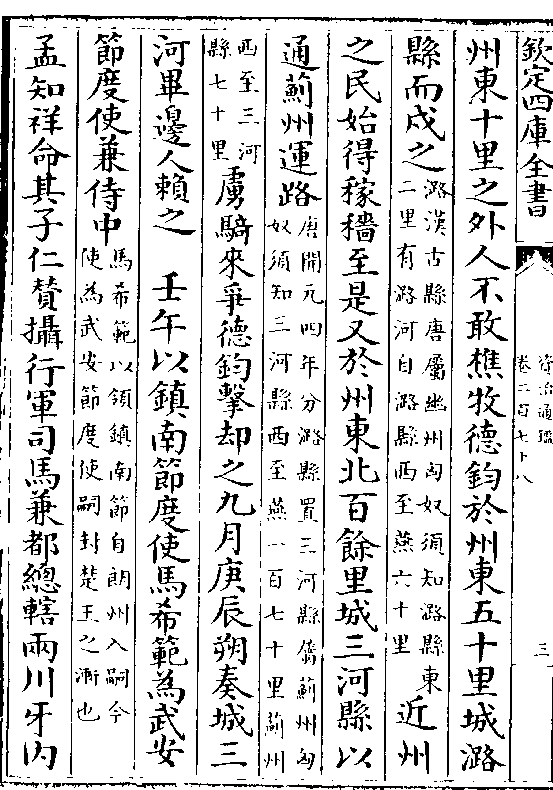 欽定四庫全書
資治通鑑
卷二百七十八
三
州東十里之外人不敢樵牧德鈞於州東五十里城潞
縣而戍之潞漢古縣唐屬幽州匈奴須知潞縣東
二里有潞河自潞縣西至燕六十里近州
之民始得稼穡至是又於州東北百餘里城三河縣以
通薊州運路唐開元四年分潞縣置三河縣屬薊州匈
奴須知三河縣西至燕一百七十里薊州
西至三河
縣七十里虜騎來爭德鈞擊却之九月庚辰朔奏城三
河畢邊人賴之 壬午以鎮南節度使馬希範為武安
節度使兼侍中馬希範以領鎮南節自朗州入嗣今
使為武安節度使嗣封楚王之漸也
孟知祥命其子仁贊攝行軍司馬兼都總轄兩川牙內